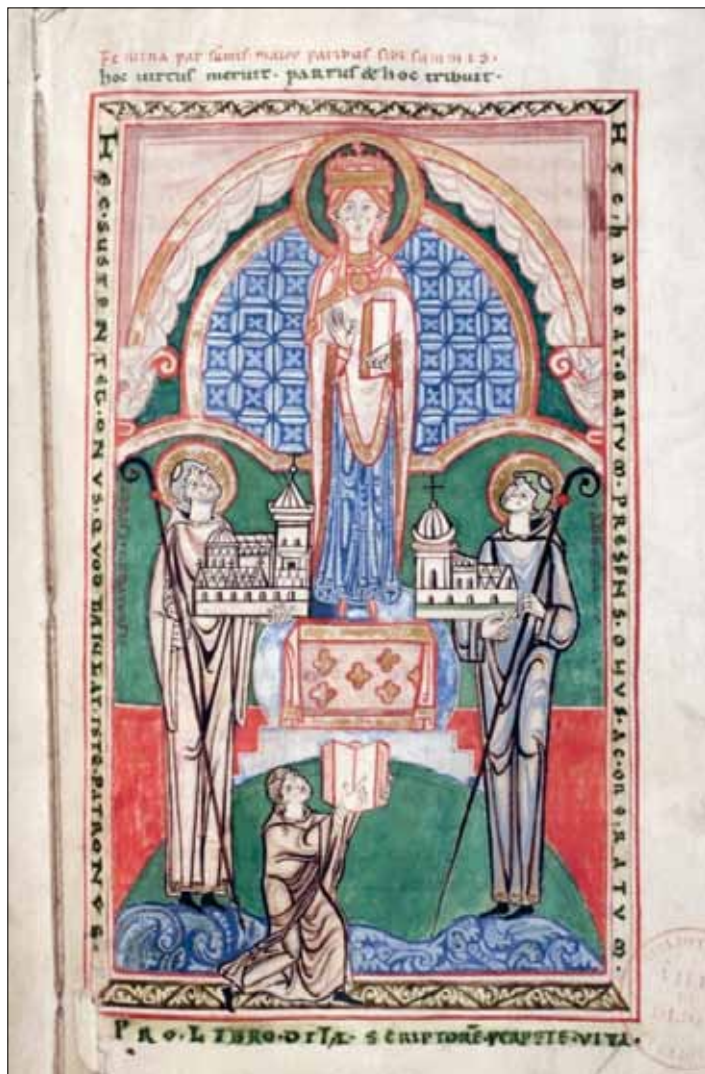 Femina par sumis maior paribus sibi summis.
hoc uirtus meruit. partus & hoc tribuit.
HEC. SUSTENTET. ONVS. QVOD BAIVLAT. ISTE. PATRONVS.
HEC. HABEAT. GRATVM. PRESENS. ONVS. AC ONERATVM.
PRO. LIBRO. DITA. SCRIPTORE. PERPETE. VITA.